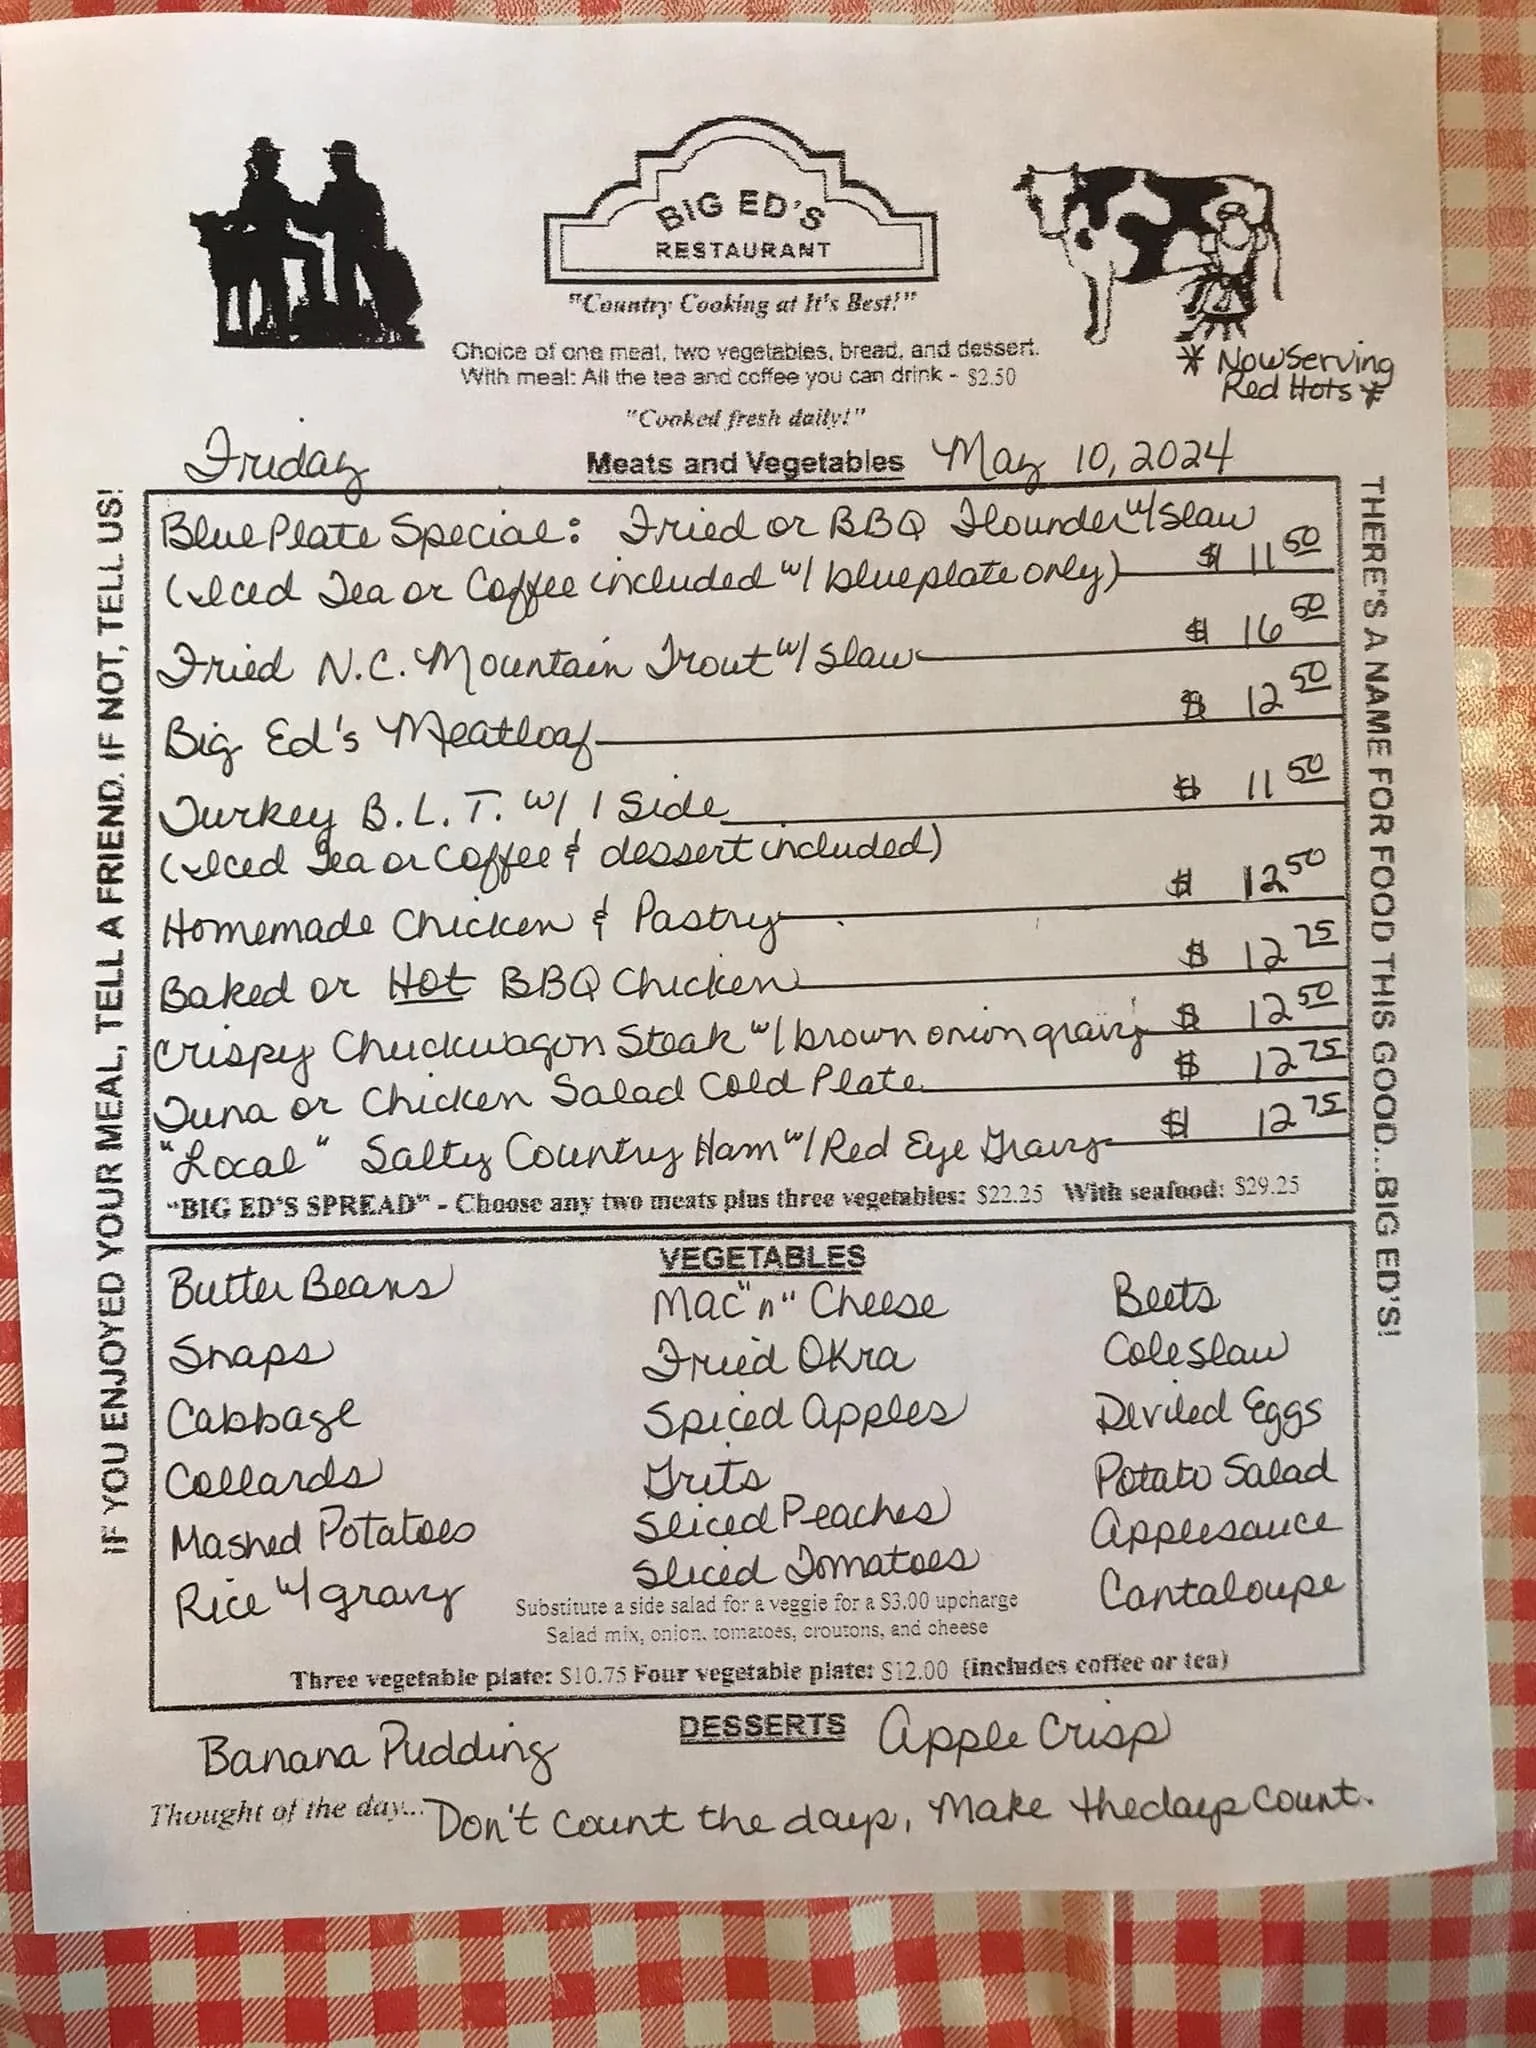 BIG ED'S
RESTAURANT
"Country Cooking at It's Best!"
Choice of one meat, two vegetables, bread, and dessert.
With meal: All the tea and coffee you can drink - $2.50
* Now Serving
Red Hots *
"Cooked fresh daily!"
Friday Meats and Vegetables May 10, 2024
IF YOU ENJOYED YOUR MEAL, TELL A FRIEND. IF NOT, TELL US!
Blue Plate Special: Fried or BBQ Flounder w/ Slaw
(Iced Tea or Coffee included w/ blueplate only) $ 11 50
Fried N.C. Mountain Trout w/ Slaw $ 16 50
Big Ed's Meatloaf $ 12 50
Turkey B.L.T. w/ 1 Side $ 11 50
(Iced Tea or Coffee & dessert included)
Homemade Chicken & Pastry $ 12 50
Baked or Hot BBQ Chicken $ 12 75
Crispy Chuckwagon Steak w/ brown onion gravy $ 12 50
Tuna or Chicken Salad Cold Plate $ 12 75
"Local" Salty Country Ham w/ Red Eye Gravy $ 12 75
"BIG ED'S SPREAD" - Choose any two meats plus three vegetables: $22.25 With seafood: $29.25
THERE'S A NAME FOR FOOD THIS GOOD...BIG ED'S!
VEGETABLES
Butter Beans Mac "n" Cheese Beets
Snaps Fried Okra Cole Slaw
Cabbage Spiced Apples Deviled Eggs
Collards Grits Potato Salad
Mashed Potatoes Sliced Peaches Applesauce
Rice w/ gravy Sliced Tomatoes Cantaloupe
Substitute a side salad for a veggie for a $3.00 upcharge
Salad mix, onion, tomatoes, croutons, and cheese
Three vegetable plate: $10.75 Four vegetable plate: $12.00 (includes coffee or tea)
DESSERTS
Banana Pudding Apple Crisp
Thought of the day... Don't count the days, Make the days count.